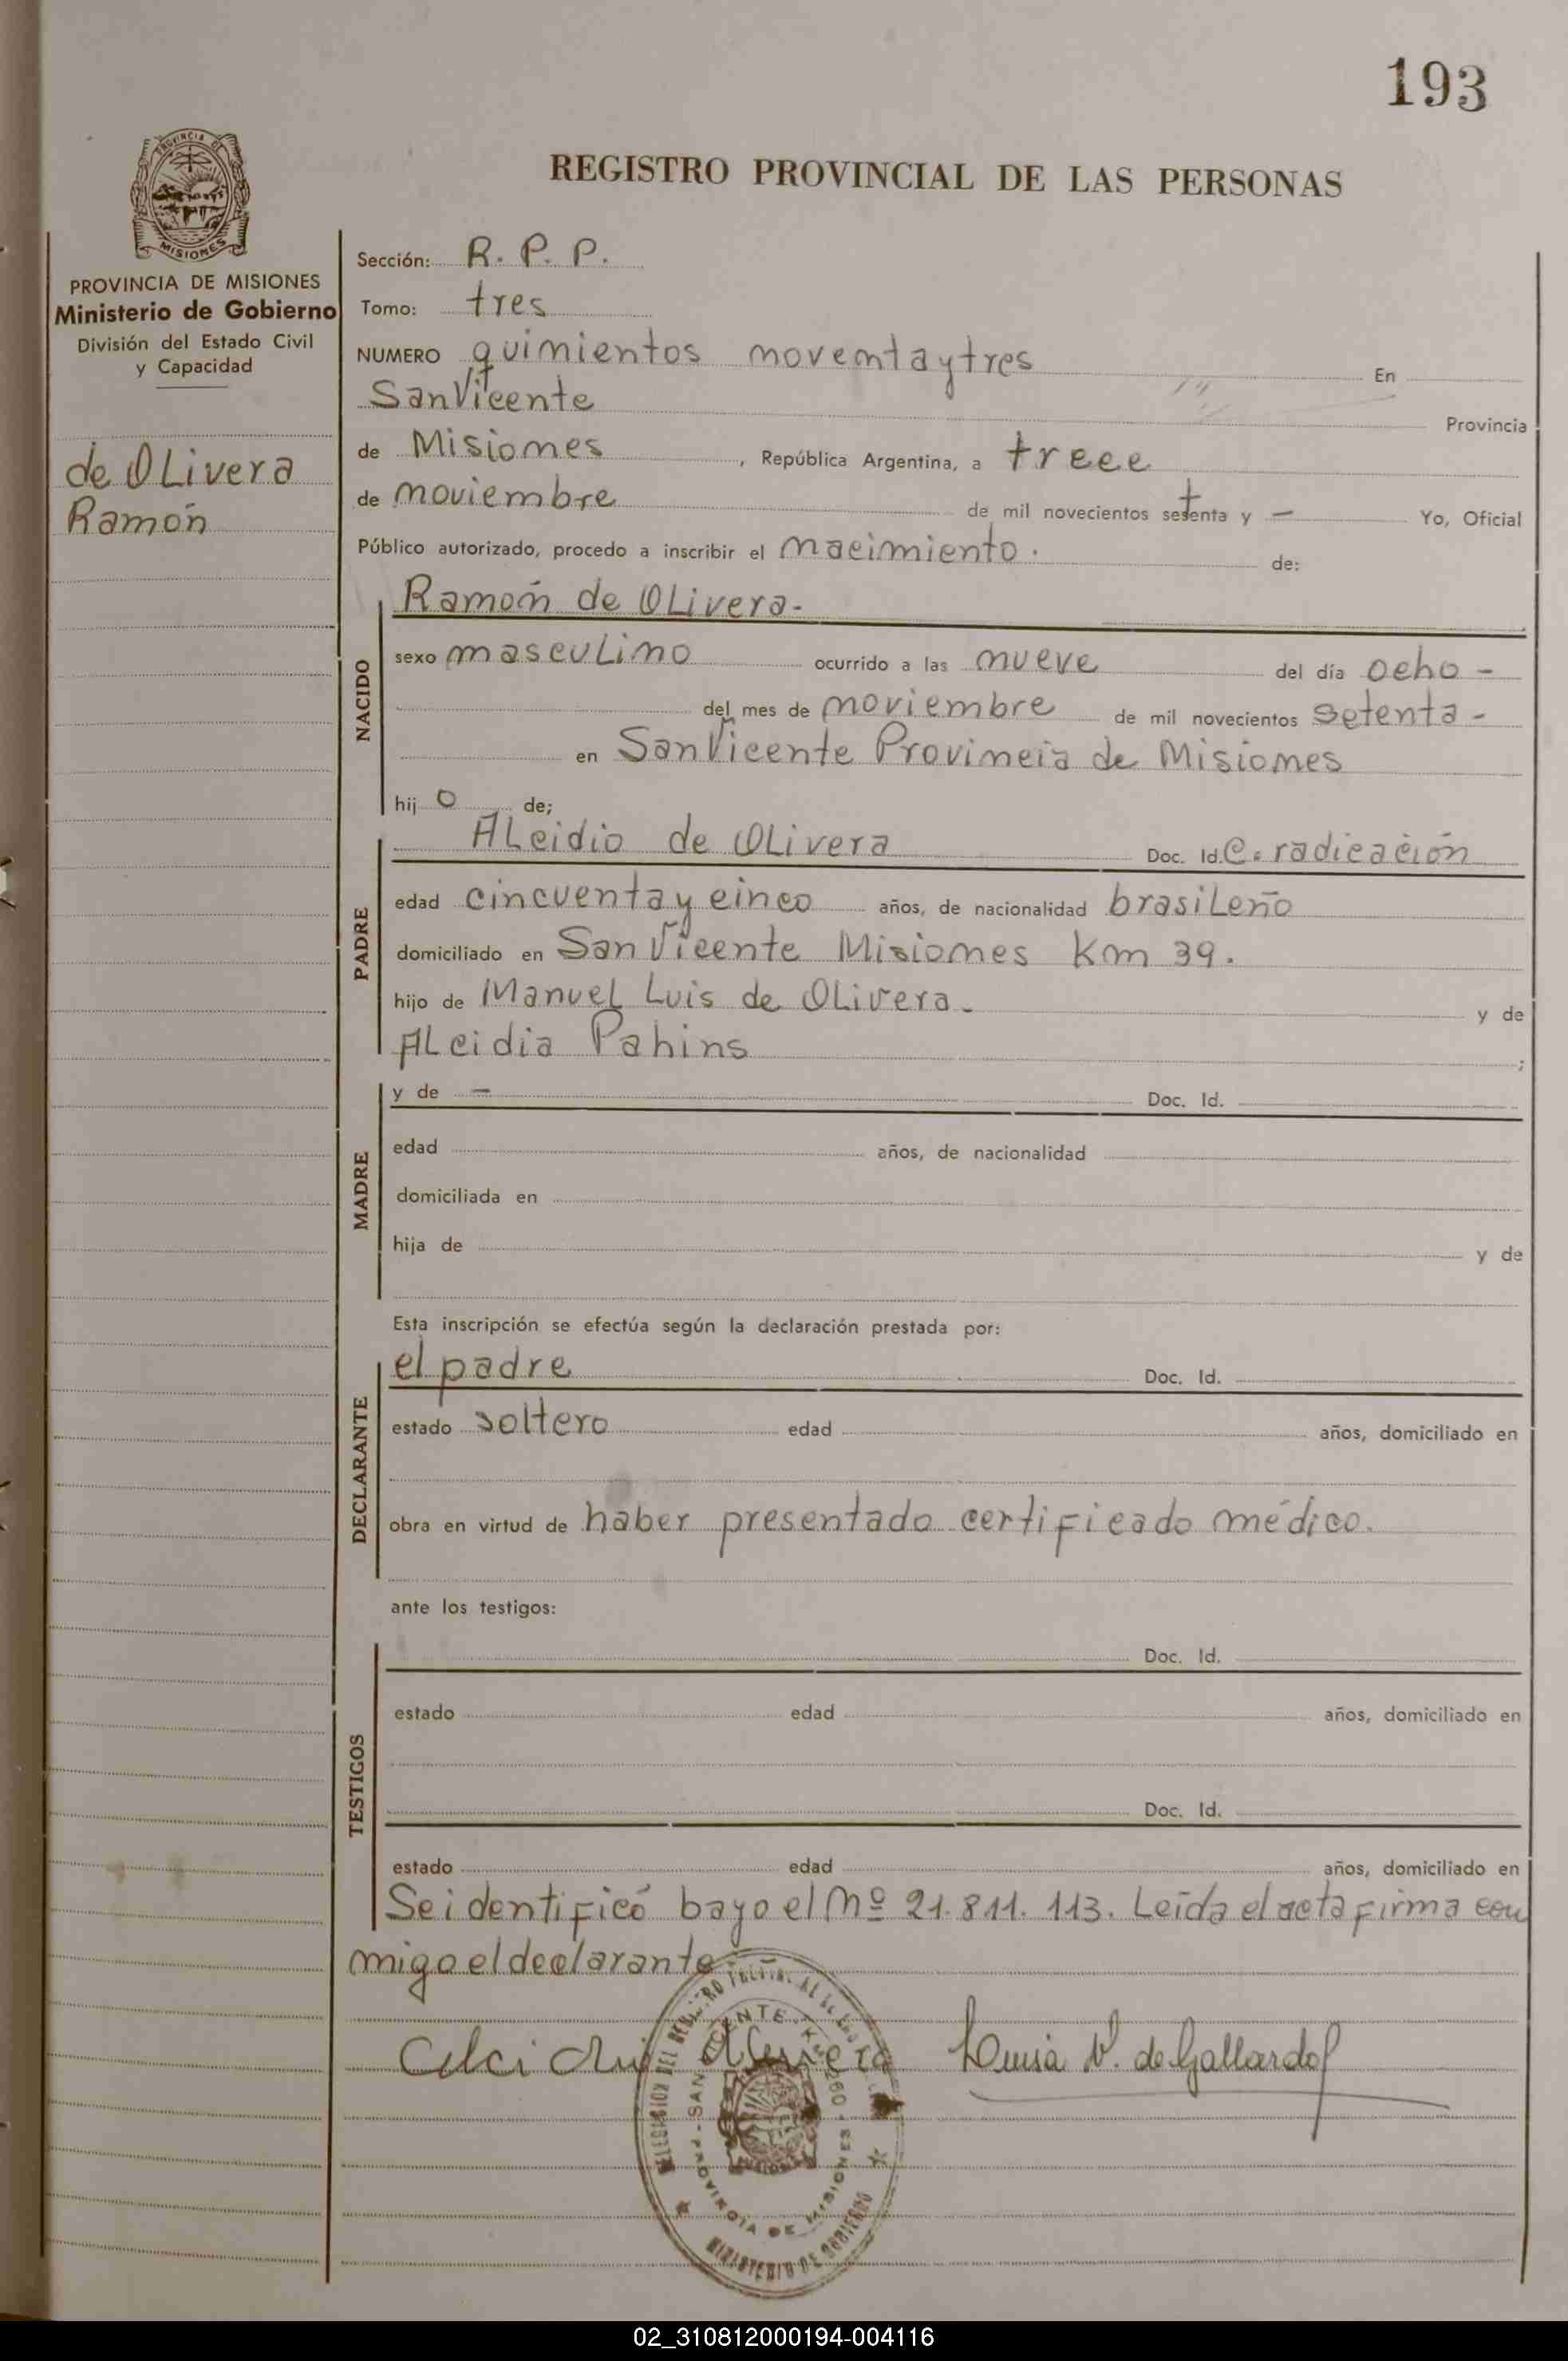 193
REGISTRO PROVINCIAL DE LAS PERSONAS
PROVINCIA DE
MISIONES
PROVINCIA DE MISIONES
Ministerio de Gobierno
División del Estado Civil
y Capacidad
de Olivera
Ramón
Sección: R. P. P.
Tomo: tres
NUMERO quinientos noventa y tres En
San Vicente Provincia
de Misiones, República Argentina, a trece
de noviembre de mil novecientos setenta y — Yo, Oficial
Público autorizado, procedo a inscribir el nacimiento. de:
Ramón de Olivera-
NACIDO
sexo masculino ocurrido a las nueve del día ocho -
del mes de noviembre de mil novecientos setenta -
en San Vicente Provincia de Misiones
hijo de;
PADRE
Alcidio de Olivera Doc. Id. C. radicación
edad cincuenta y cinco años, de nacionalidad brasileño
domiciliado en San Vicente Misiones Km 39.
hijo de Manuel Luis de Olivera - y de
Alcidia Pahins ;
MADRE
y de — Doc. Id.
edad años, de nacionalidad
domiciliada en
hija de y de
Esta inscripción se efectúa según la declaración prestada por:
DECLARANTE
el padre Doc. Id.
estado soltero edad años, domiciliado en
obra en virtud de haber presentado certificado médico.
ante los testigos:
TESTIGOS
Doc. Id.
estado edad años, domiciliado en
Doc. Id.
estado edad años, domiciliado en
Se identificó bayo el Nº 21.811.113. Leída el acta firma con
migo el declarante
Luisa V. de Gallardo
SAN VICENTE
PROVINCIA DE MISIONES
MINISTERIO DE GOBIERNO
02_310812000194-004116